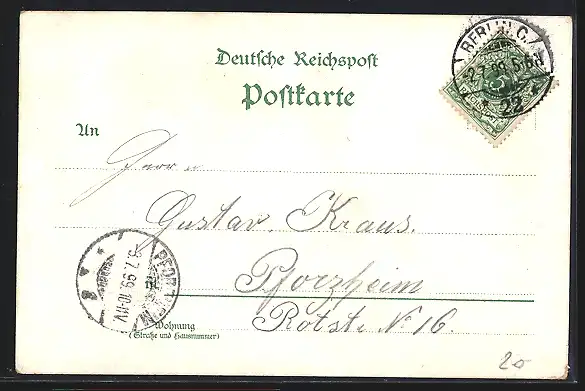 BERLIN C.
2.7.99.
22
Deutsche Reichspost
Postkarte
An
Herrn
Gustav Kraus.
Pforzheim
Rotstr. No 16.
PFORZHEIM
3.7.99.
Wohnung
(Straße und Hausnummer)